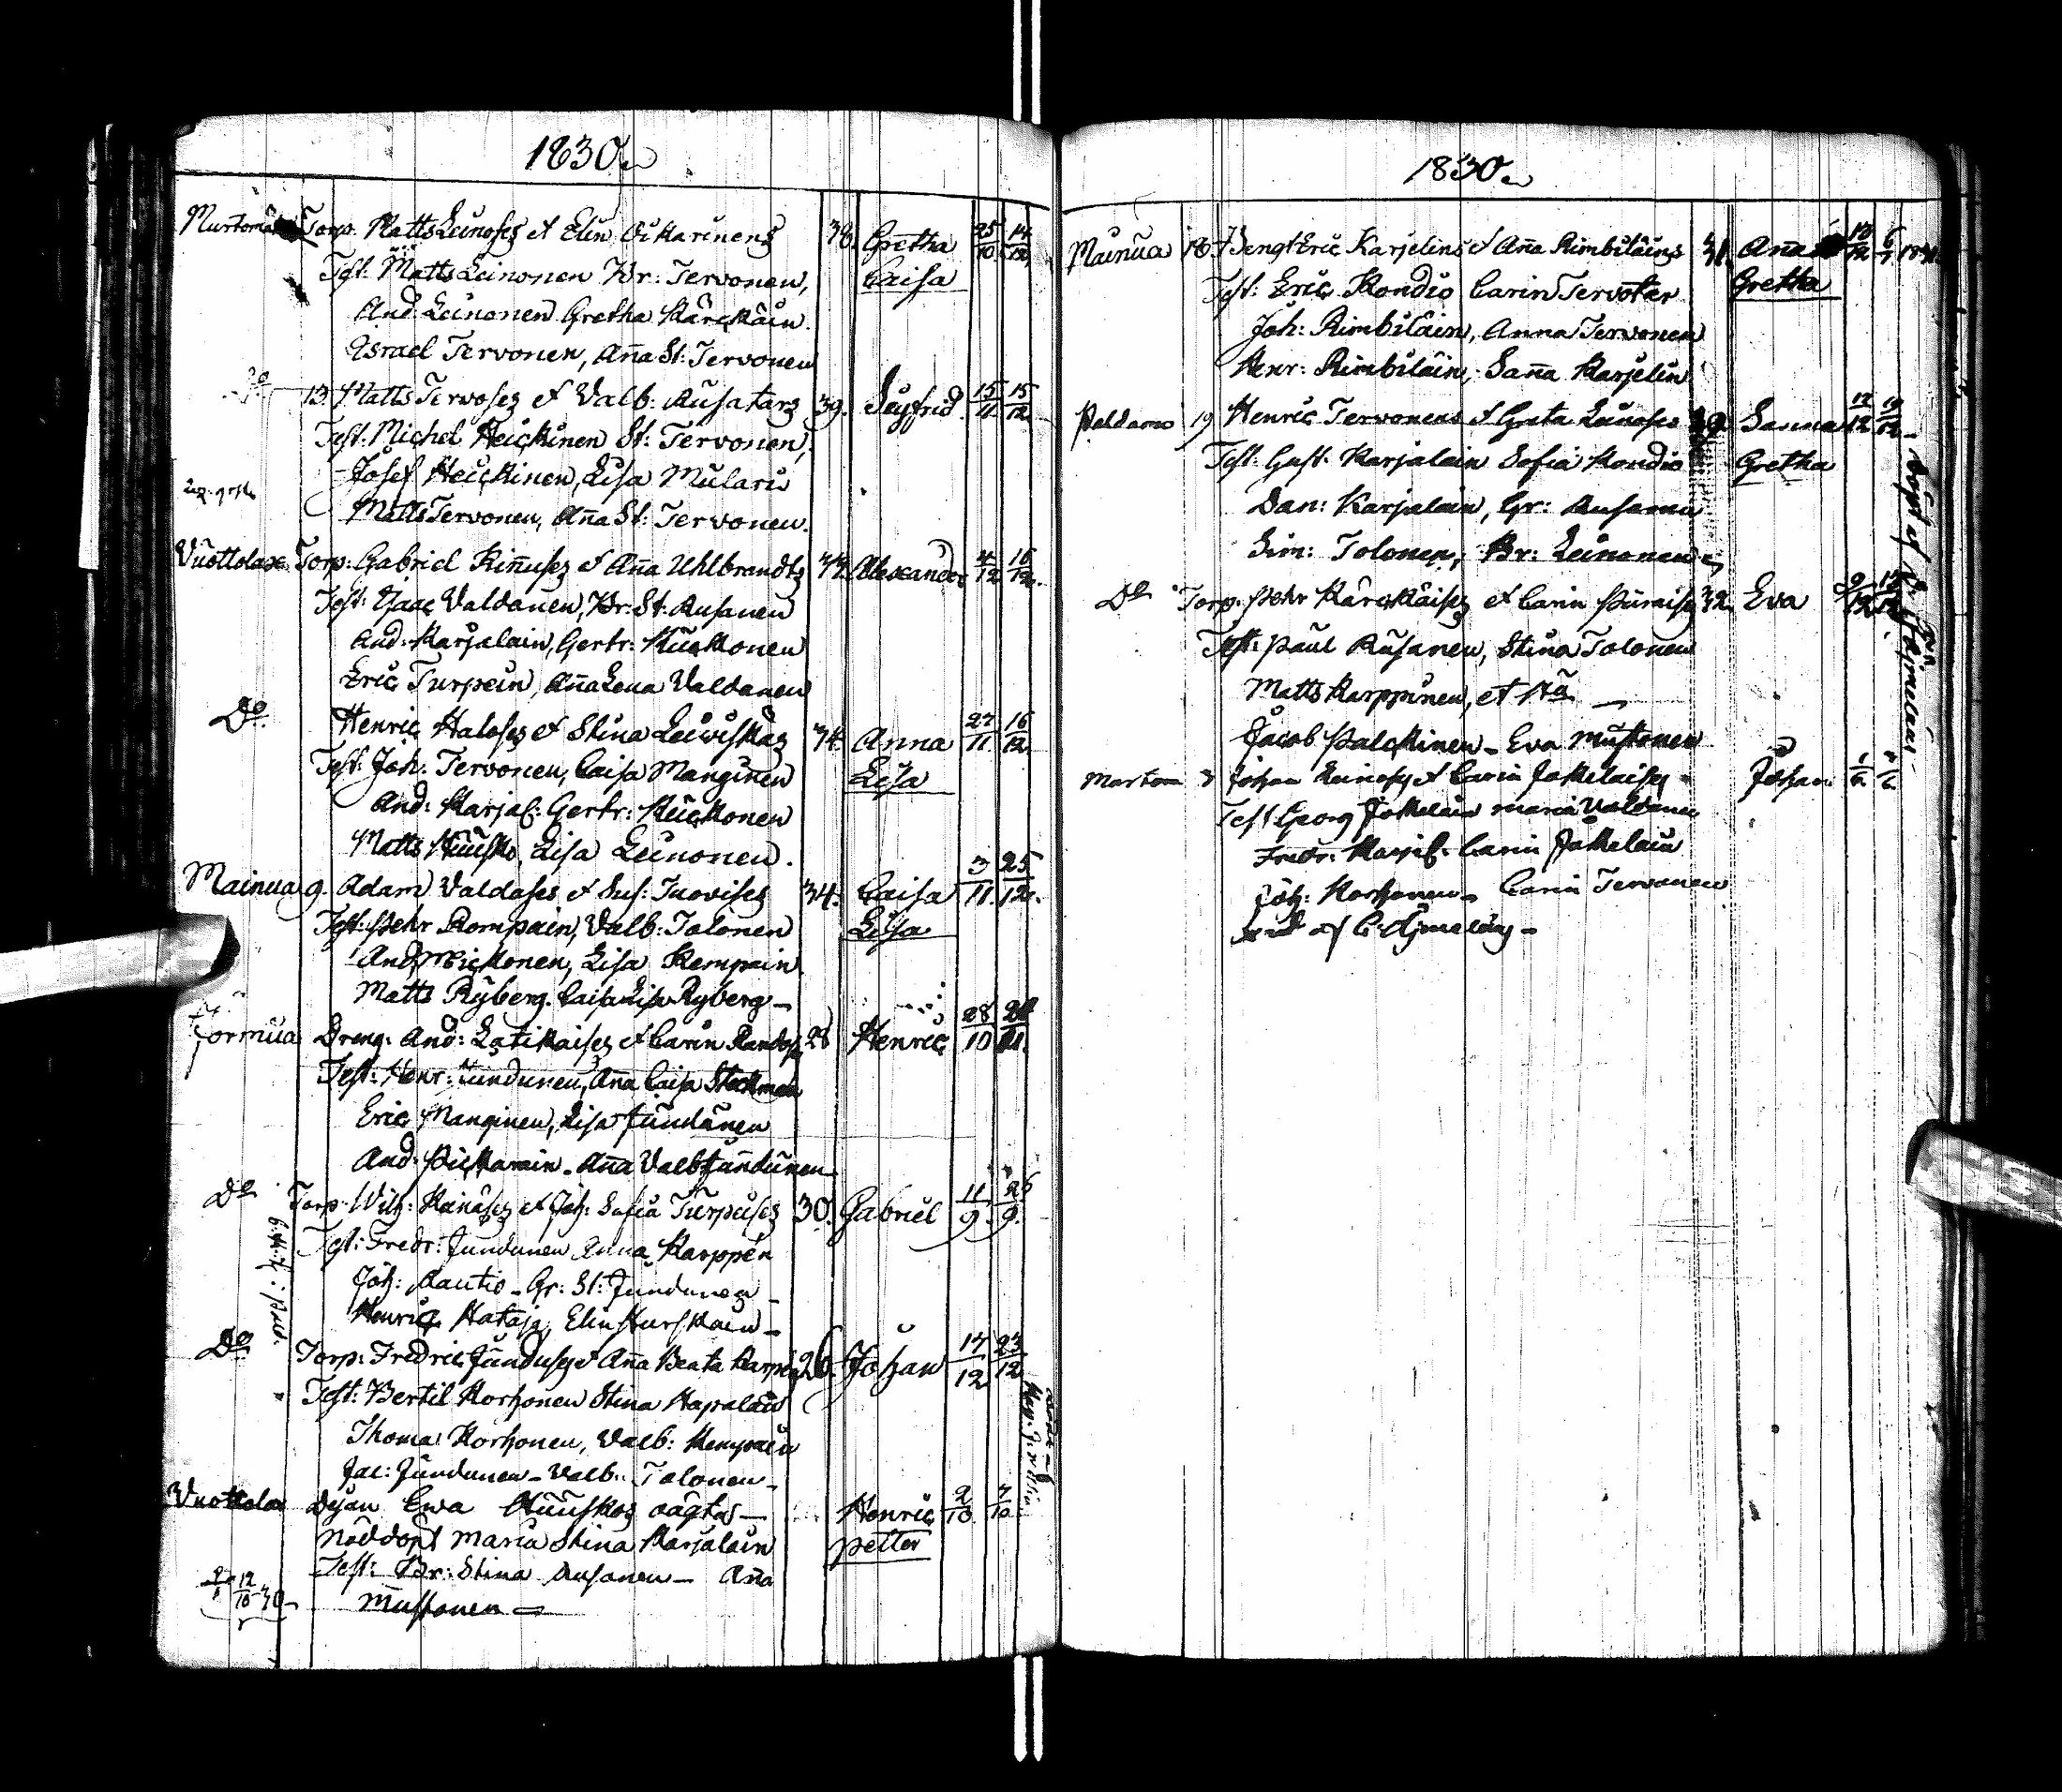 1830.
Murtomä Torp. Matts Leinoses et Elin Oikarinens 38. Gretha 25/10 14/12
Test: Matts Leinonen Br: Tervonen, Caisa
And. Leinonen Gretha Kärckäin.
Israel Tervonen, Aña St: Tervonen
Do 13 Matts Tervoses et Valb: Rusatars 39. Seyfrid 15/11 15/12
Test: Michel Heickinen St: Tervonen,
Josef Heickinen, Lisa Mulari
Matts Tervonen, Aña St: Tervonen.
Vuottolax Torp: Gabriel Kiñuses et Aña Uhlbrandts Alexander 4/12 16/12
Test: Isaac Valdanen, Br: St: Rusanen
And: Karjalain, Gertr: Kückonen
Eric Turpein, Aña Lena Valdanen
Do Henric Haloses et Stina Leiviskas 34. Anna 27/11 16/12
Test: Joh. Tervonen, Caisa Manginen Lisa
And: Karjal: Gertr: Kückonen
Matts Huusko, Lisa Leinonen.
Mainua 9. Adam Valdases et Sus: Tuovises 34. Caisa 3/11 25/12
Test: Pehr Kompain, Valb: Tolonen Lisa
And Mickonen, Lisa Kempain
Matts Ryberg. Caisa Lisa Ryberg
Jormua Dreng. And: Latikaises et Carin 28 Henric 28/10
Test: Henr: Jundunen, Aña Caisa Steckman
Eric Manginen, Lisa Jundunen
And: Pickarain. Aña Valb Jundunen
Do Torp. Wilh: Kainases et Joh: Sofia Turpuses 30. Gabriel 11/9 26/9
Test: Fredr: Jundunen Anna Karppén
Joh: Rautio. Gr: St: Jundunen
Henric Hataja, Elin Hurskain
Do Torp: Fredric Junduses et Aña Beata Karpén 26 Johan 17/12 23/12
Test: Bertil Korhonen Stina Hapalain
Thoma Korhonen, Valb: Kempain
Jac: Jundunen. Valb: Tolonen
Vuottolax Dejan Ewa Huuskos oägta Henric 2/10 7/10
Nöddöpt Maria Stina Karjalain Petter
Test: Br: Stina Rusanen Aña
Mustonen
1830.
Mainua 18. Bengt Eric Karjelins et Aña Rimbiläins 31. Aña 18/12 6/1 1831
Test: Eric Kondio Carin Tervotar Gretha
Joh: Rimbiläin, Anna Tervonen
Henr: Rimbiläin, Saña Karjelin
Paldamo 19 Henric Tervonens et Greta Leinoses Sanna 12/12 19/12
Test: Gust: Karjalain Sofia Kondio Gretha
Dan: Karjalain, Gr: Rusanen
Sim: Tolonen, Br: Leinonen
Do Torp. Pehr Kärckäises et Carin Piiraises 32. Eva 9/12
Test: Paul Rusanen, Stina Tolonen
Matts Karppinen, et Ux
Jacob Palckinen Eva Mustonen
Martom 3 Johan Leinoses et Carin Jokelaises Johan
Test Georg Jokelain Maria Valdanen
Fredr: Karjal: Carin Jokelain
Joh: Korhonen Carin Tervonen
af C. Ajmelæus